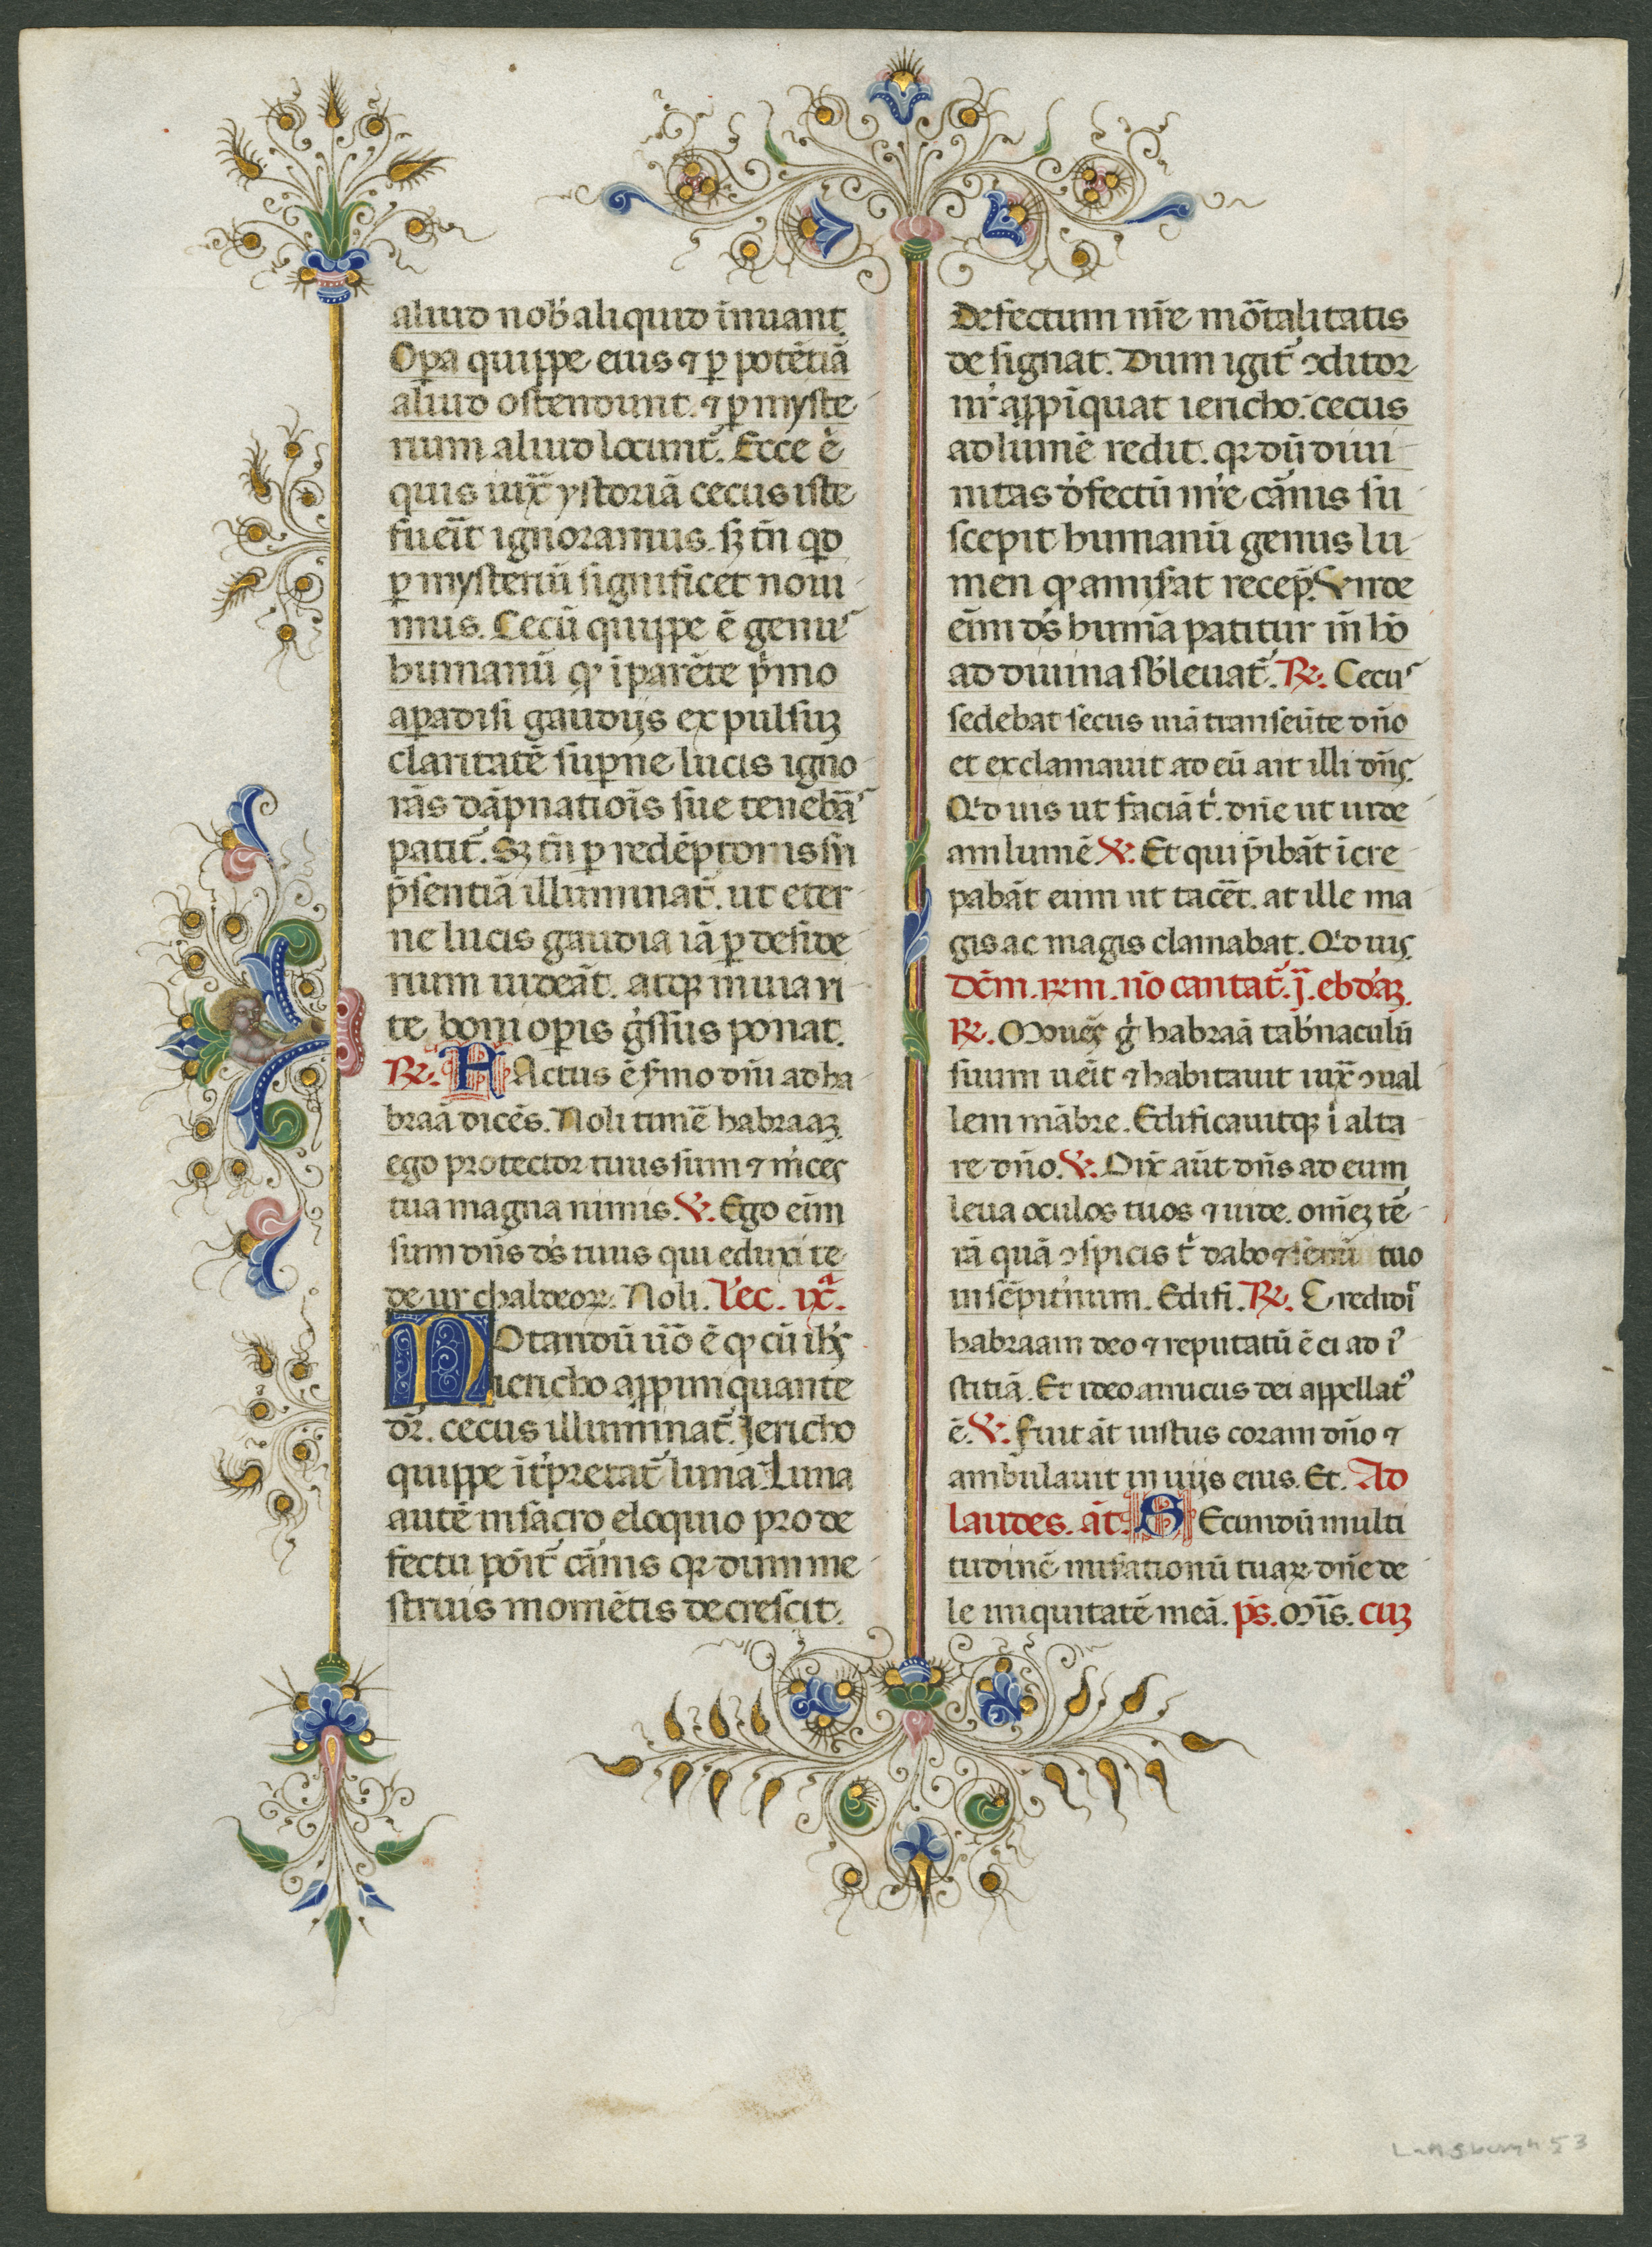 aliud nob̓ aliquid innuant
Oꝑa quippe eius ⁊ ꝑ potētiā
aliud oſtendunt. ⁊ ꝑ myſte
rium aliud locunt᷑. Ecce ē
quis iux̄ yſtoriā cecus iſte
fueīt ignoramus. ſꝫ tn̄ qd̓
ꝑ myſteriū ſignificet noui
mus. Cecū quippe ē genus
humanū qꝫ i parēte p̓mo
a paradiſi gaudijs expulſuꝫ
claritatē ſuꝑne lucis igno
rās dāpnatiois̄ ſue tenebās
patit᷑. Sꝫ tn̄ ꝑ redēptoris ſn̄
p̄ſentiā illuminat᷑. ut eter
ne lucis gaudia iā ꝑ deſide
rium uideāt. atqꝫ in uia ui
te boni oꝑis g̓ſſus ponat.
℞. F Actus ē ſ̓mo dn̄i ad ha
braā dicēs. Noli timē habraaꝫ
ego protector tuus ſum ⁊ m̓ces
tua magna nimis. ℣. Ego eim̄
ſum dn̄s ds̓ tuus qui eduxi te
de ur chaldeoꝝ. Noli. Lec̓. ix.ᵃ
N Otandū ūo ē qꝫ cū ih̄s
iericho appinquante
dr̄. cecus illuminat᷑. Jericho
quippe īt̓pretat᷑ luna. Luna
autē in ſacro eloquio pro de
fectu poīt᷑ cānis qꝛ dum me
ſtruis momētis decreſcit.
defectum nr̄e mōtalitatis
deſignat. Dum igit᷑ ꝯditor
nr̓ appīquat iericho. cecus
ad lumē redit. qꝛ dū diui
nitas d̓fectū nr̓e cānis ſu
ſcepit humanū genus lu
men qꝫ amiſ̓at recep̄. Vnde
eim̄ ds̓ humā patitur in̄ hō
ad diuina ſb̓leuat᷑. ℞. Cecus
ſedebat ſecus uiā tranſeūte dn̄o
et exclamauit ad eū ait illi dn̄s
Qd̓ uis ut faciā t̓. dn̄e ut uide
am lumē ℣. Et qui p̄ibāt īcre
pabāt eum ut tacēt. at ille ma
gis ac magis clamabat. Qd̓ uis
Dc̄m. ꝶm. nō cantat᷑. j̄. ebd̓aꝫ.
℞. Mouēs g̓ habraā tab̓naculū
ſuum uēit ⁊ habitauit iux̄ ꝯual
lem mābre. Edificauitqꝫ i alta
re dn̄o. ℣. Dix̓ aūt dn̄s ad eum
leua oculos tuos ⁊ uide. om̄eꝫ tē
rā quā ꝯſpicis t̓ dabo ⁊ ſemī tuo
in ſēpit̓num. Edifi. ℞. Credidi
habraam deo ⁊ reputatū ē ei ad i
ſtitiā. Et ideo amicus dei appellatꝰ
ē. ℣. Fuit āt iuſtus coram dn̄o ⁊
ambulauit in uijs eius. Et. Ad
laudes. āt. S Ecundū multi
tudinē miſ̓ationū tuaꝝ dn̄e de
le iniquitatē meā. ps̄. Mis̄. cuꝫ